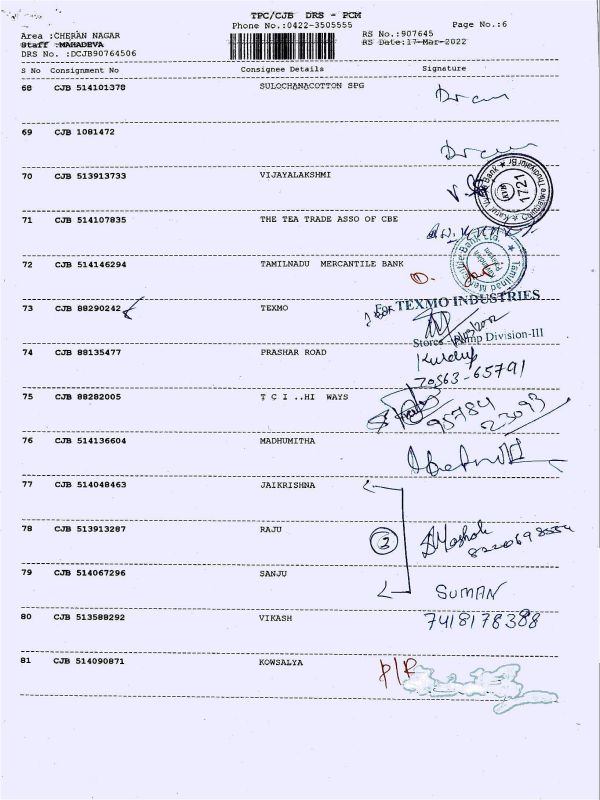 TPC/CJB DRS - PCM
Phone No.:0422-3505555 Page No.:6
Area :CHERAN NAGAR RS No.:907645
Staff :MAHADEVA RS Date:17-Mar-2022
DRS No. :DCJB90764506
S No Consignment No Consignee Details Signature
68 CJB 514101378 SULOCHANACOTTON SPG
69 CJB 1081472
70 CJB 513913733 VIJAYALAKSHMI
1721
71 CJB 514107835 THE TEA TRADE ASSO OF CBE
72 CJB 514146294 TAMILNADU MERCANTILE BANK
Tamilnad Mercantile Bank Ltd.
73 CJB 88290242 TEXMO
For TEXMO INDUSTRIES
Stores - Pump Division-III
74 CJB 88135477 PRASHAR ROAD
70563-65791
75 CJB 88282005 T C I ..HI WAYS
95784
23093
76 CJB 514136604 MADHUMITHA
77 CJB 514048463 JAIKRISHNA
78 CJB 513913287 RAJU
3
79 CJB 514067296 SANJU
SUMAN
80 CJB 513588292 VIKASH 7418178388
81 CJB 514090871 KOWSALYA